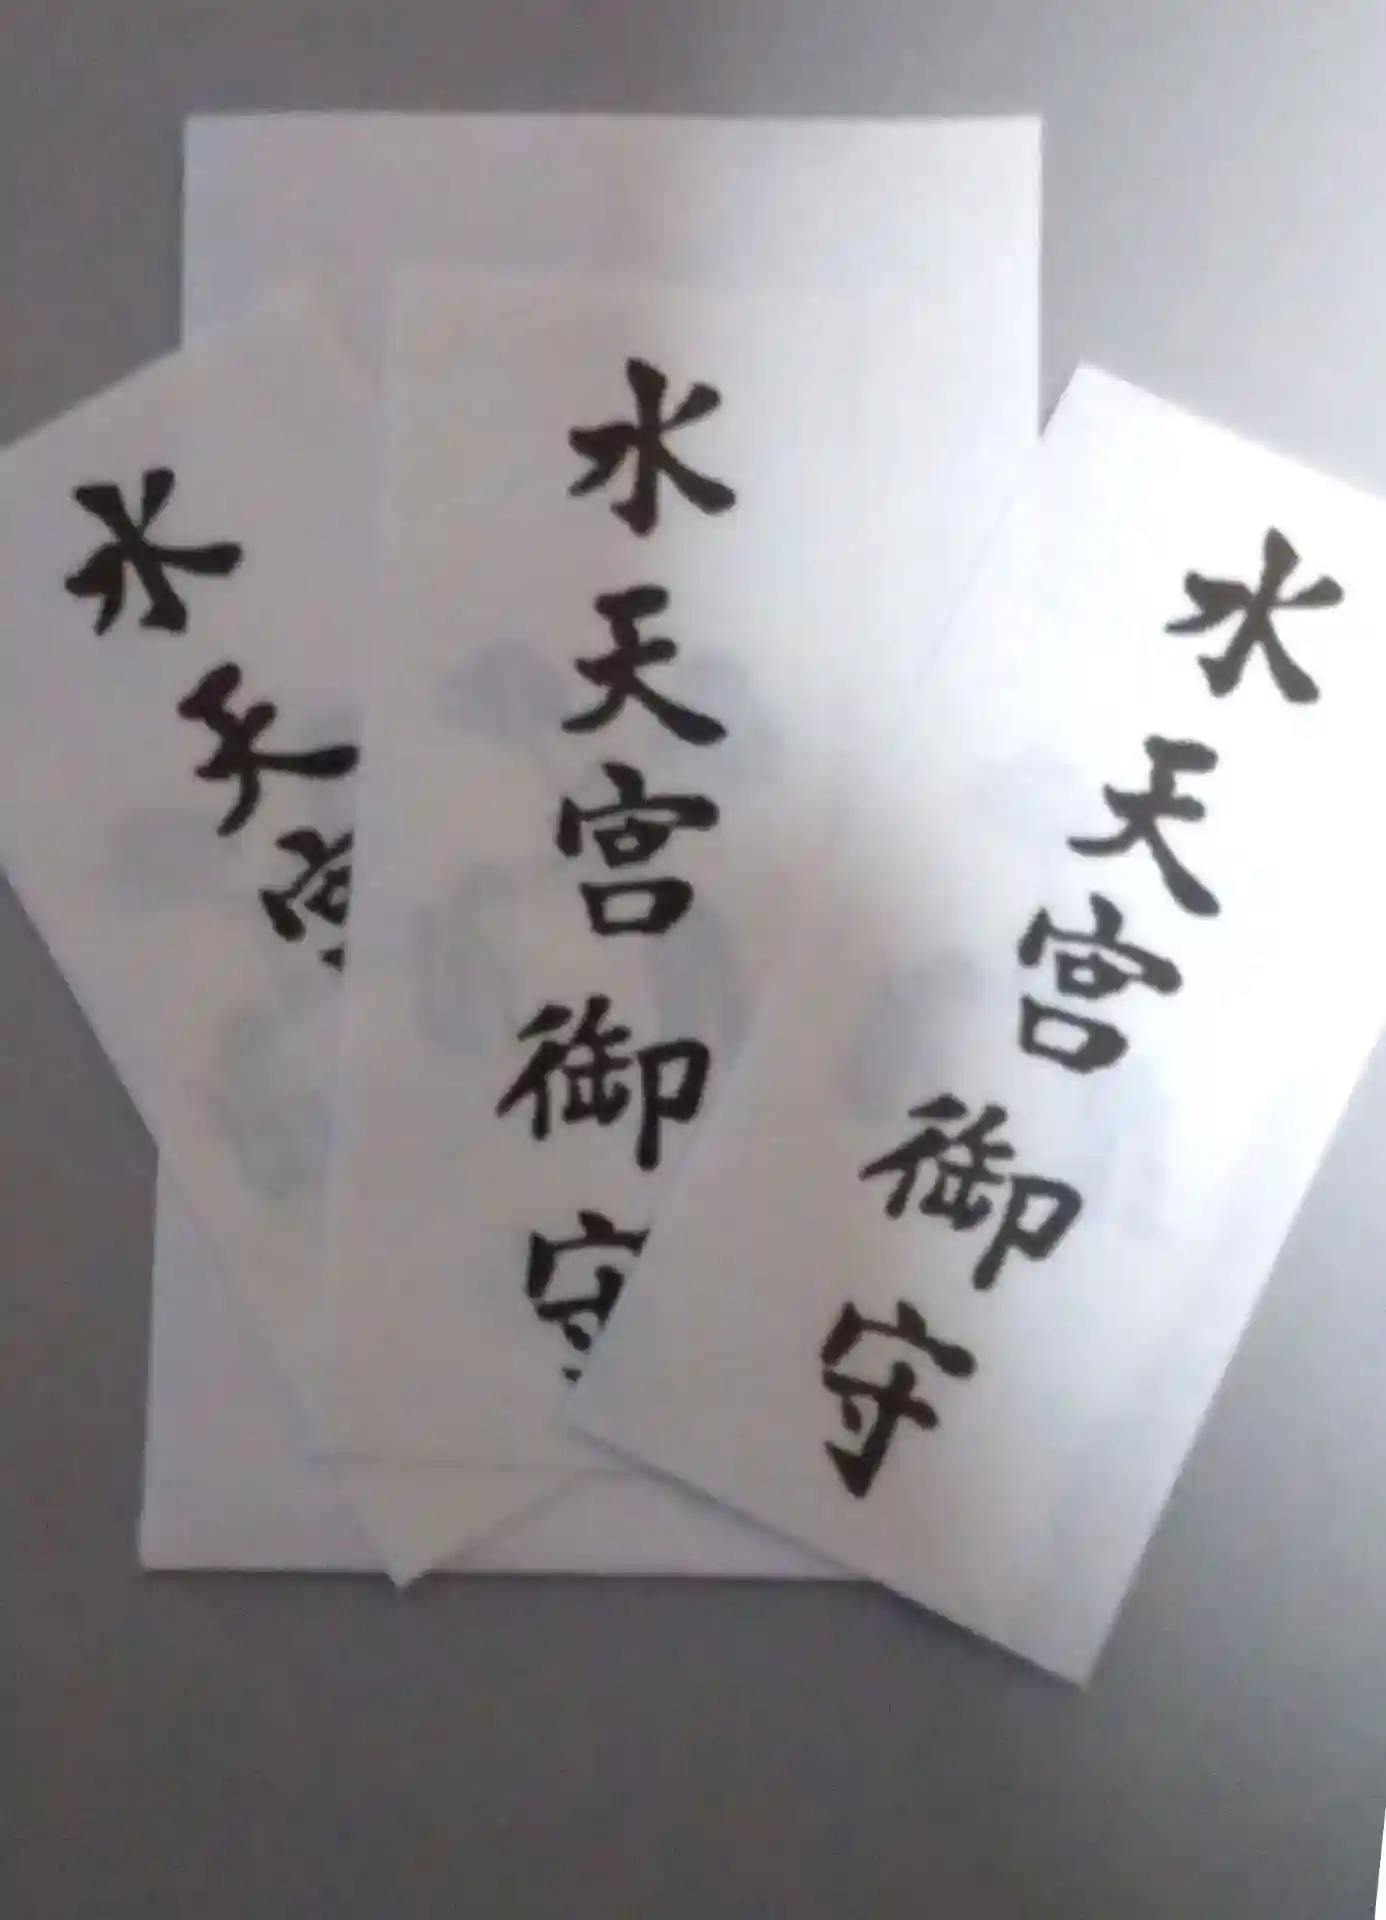 水天宮御守
水天宮御守
水天宮